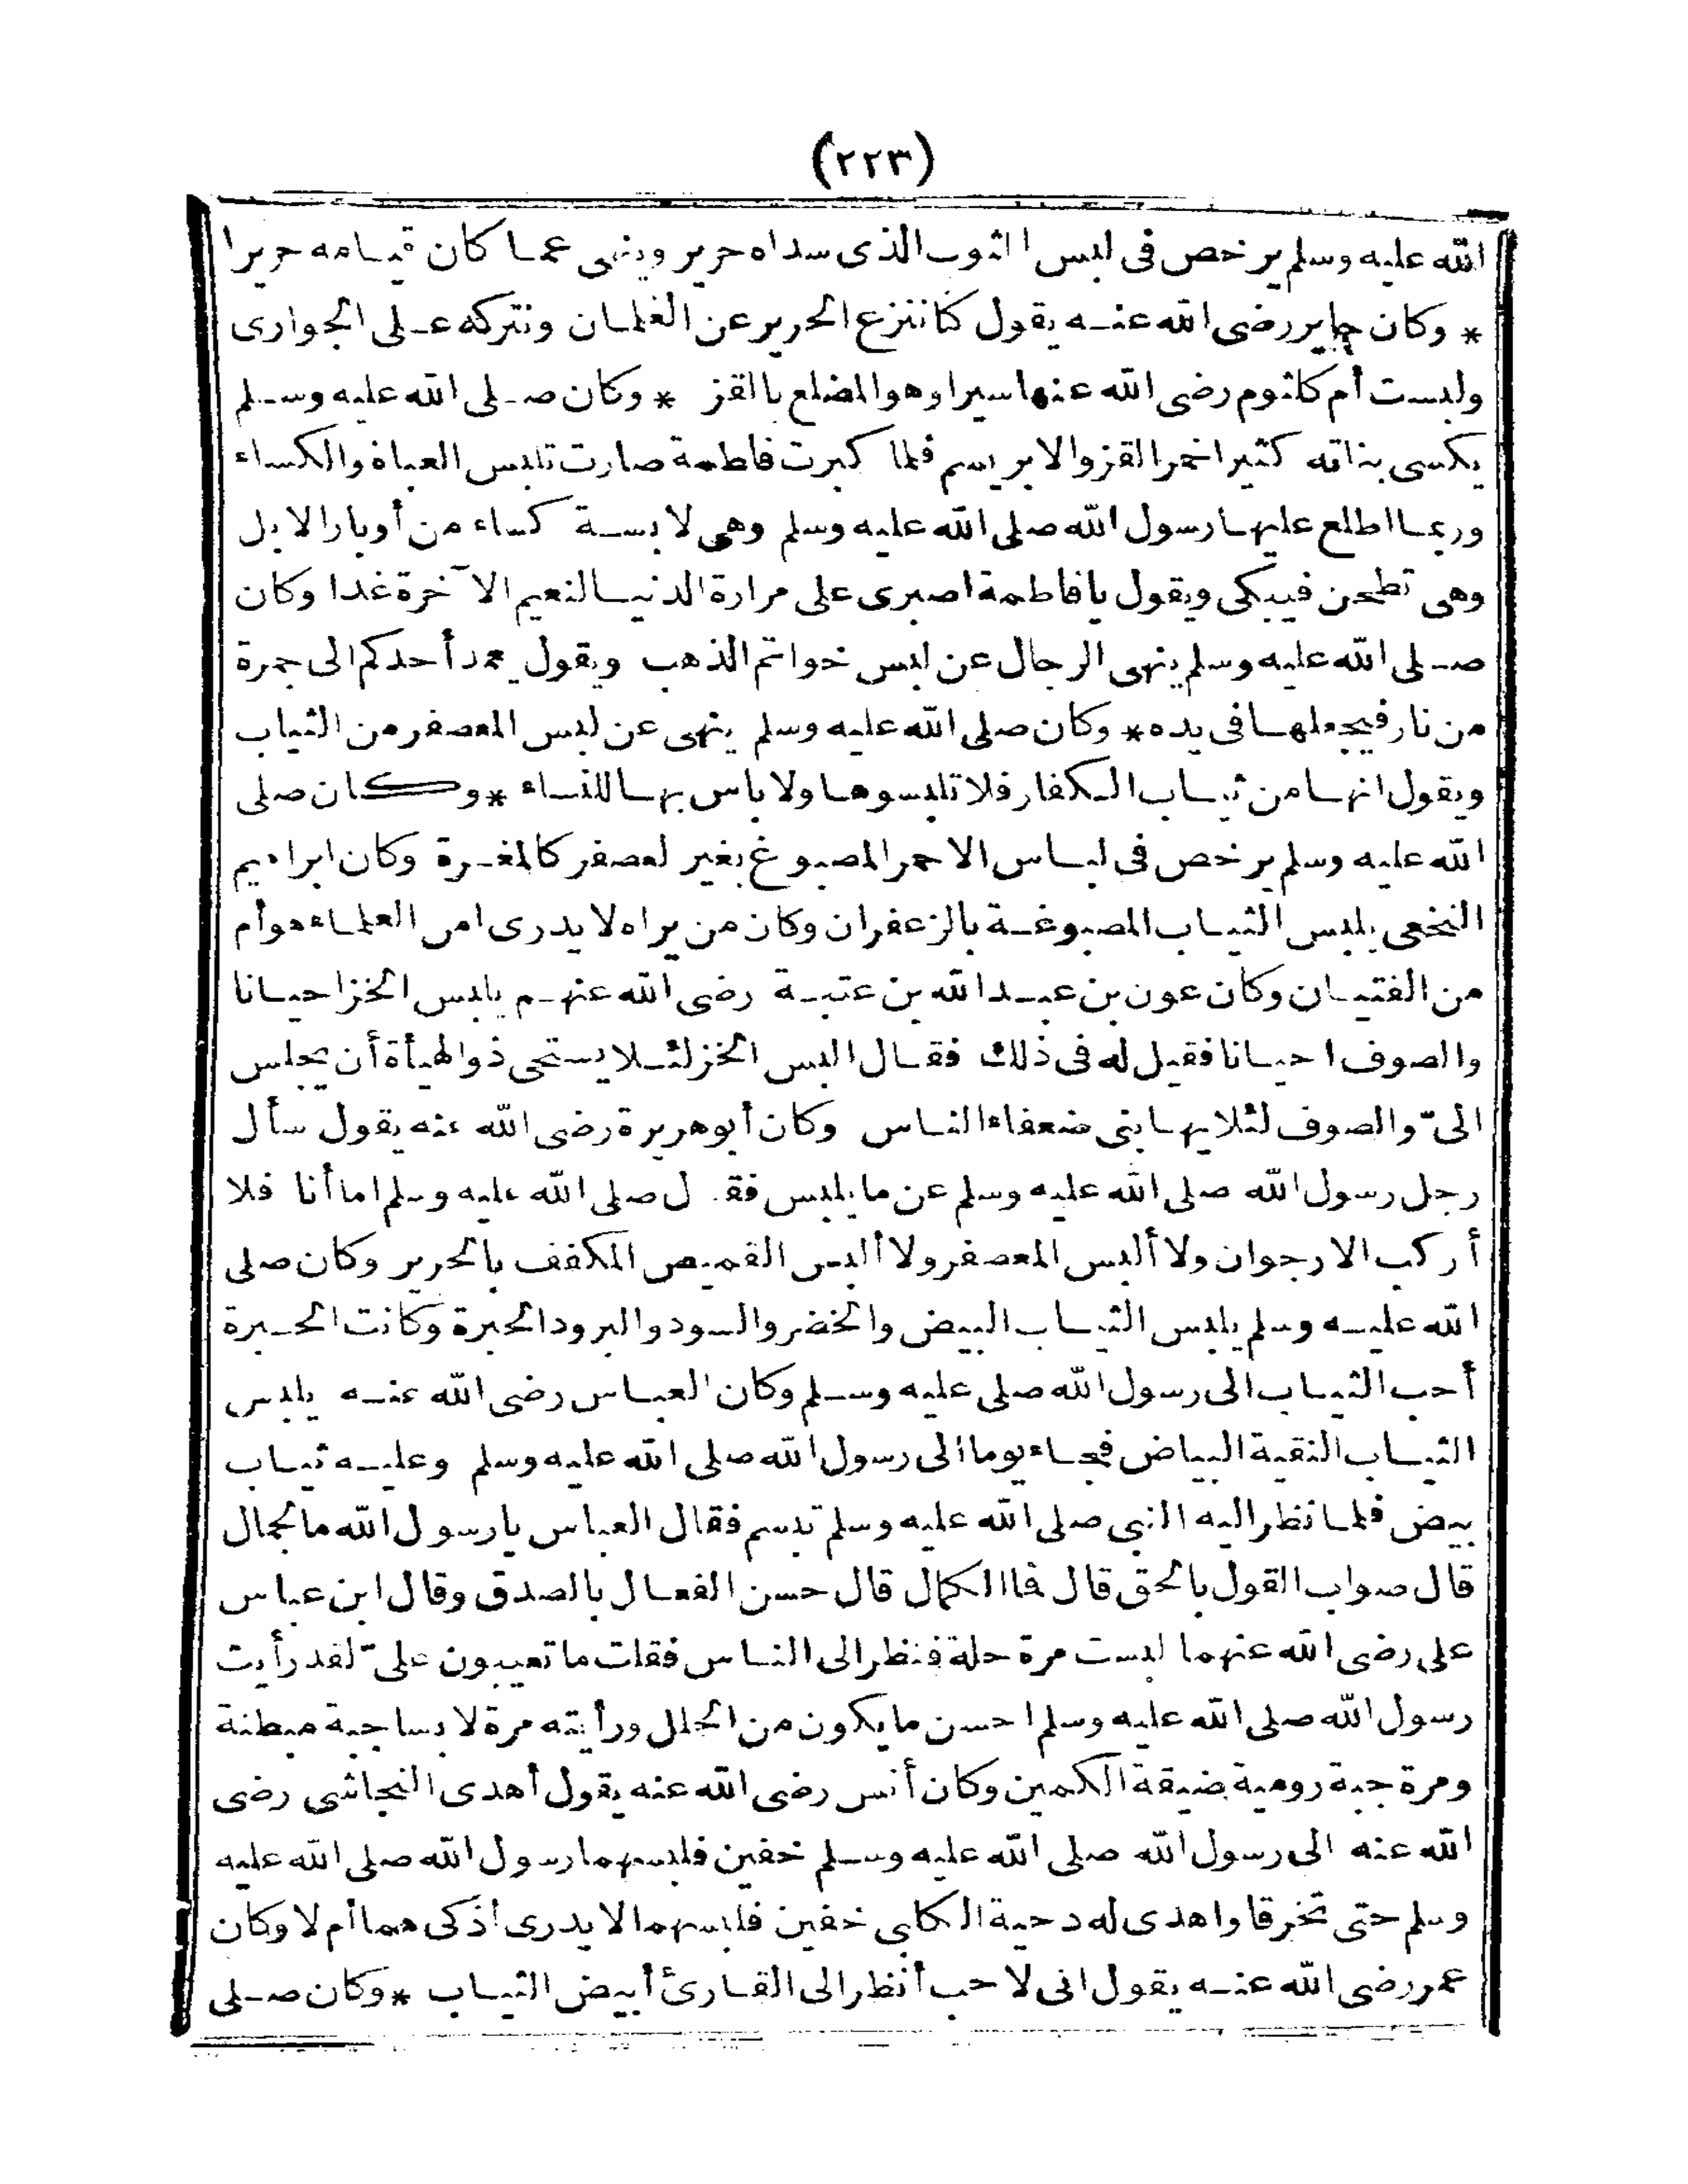 (٢٢٣)
الله عليه وسلم يرخص فى لبس الثوب الذى سداه حرير وينهى عما كان قيامه حريرا
* وكان جابر رضى الله عنه يقول كنا ننزع الحرير عن الغلمان ونتركه على الجوارى
ولبست أم كلثوم رضى الله عنها سيرا وهو المضلع بالقز * وكان صلى الله عليه وسلم
يكسى بناته كثيرا خمر القز والابريسم فلما كبرت فاطمة صارت تلبس العباة والكساء
وربما اطلع عليها رسول الله صلى الله عليه وسلم وهى لابسة كساء من أوبار الابل
وهى تطحن فيبكى ويقول يا فاطمة اصبرى على مرارة الدنيا لنعيم الآخرة غدا وكان
صلى الله عليه وسلم ينهى الرجال عن لبس خواتم الذهب ويقول يعمد أحدكم الى جمرة
من نار فيجعلها فى يده * وكان صلى الله عليه وسلم ينهى عن لبس المعصفر من الثياب
ويقول انها من ثياب الكفار فلا تلبسوها ولا باس بها للنساء * وكان صلى
الله عليه وسلم يرخص فى لباس الاحمر المصبوغ بغير لعصفر كالمغرة وكان ابراهيم
النخعى يلبس الثياب المصبوغة بالزعفران وكان من يراه لا يدرى امن العلماء هو أم
من الفتيان وكان عون بن عبد الله بن عتبة رضى الله عنهم يلبس الخز احيانا
والصوف احيانا فقيل له فى ذلك فقال البس الخز لئلا يستحى ذو الهيأة أن يجلس
الىّ والصوف لئلا يهابنى ضعفاء الناس وكان أبو هريرة رضى الله عنه يقول سأل
رجل رسول الله صلى الله عليه وسلم عن ما يلبس فقال صلى الله عليه وسلم اما أنا فلا
أركب الارجوان ولا ألبس المعصفر ولا ألبس القميص المكفف بالحرير وكان صلى
الله عليه وسلم يلبس الثياب البيض والخضر والسود والبرود الحبرة وكانت الحبرة
أحب الثياب الى رسول الله صلى عليه وسلم وكان العباس رضى الله عنه يلبس
الثياب النقية البياض فجاء يوما الى رسول الله صلى الله عليه وسلم وعليه ثياب
بيض فلما نظر اليه النبى صلى الله عليه وسلم تبسم فقال العباس يا رسول الله ما الجمال
قال صواب القول بالحق قال فما الكمال قال حسن الفعال بالصدق وقال ابن عباس
على رضى الله عنهما لبست مرة حلة فنظر الى الناس فقلت ما تعيبون علىّ لقد رأيت
رسول الله صلى الله عليه وسلم احسن ما يكون من الحلل ورأيته مرة لابسا جبة مبطنة
ومرة جبة رومية ضيقة الكمين وكان أنس رضى الله عنه يقول أهدى النجاشى رضى
الله عنه الى رسول الله صلى الله عليه وسلم خفين فلبسهما رسول الله صلى الله عليه
وسلم حتى تخرقا واهدى له دحية الكلبى خفين فلبسهما لا يدرى أذكى هما أم لا وكان
عمر رضى الله عنه يقول انى لاحب أنظر الى القارئ أبيض الثياب * وكان صلى